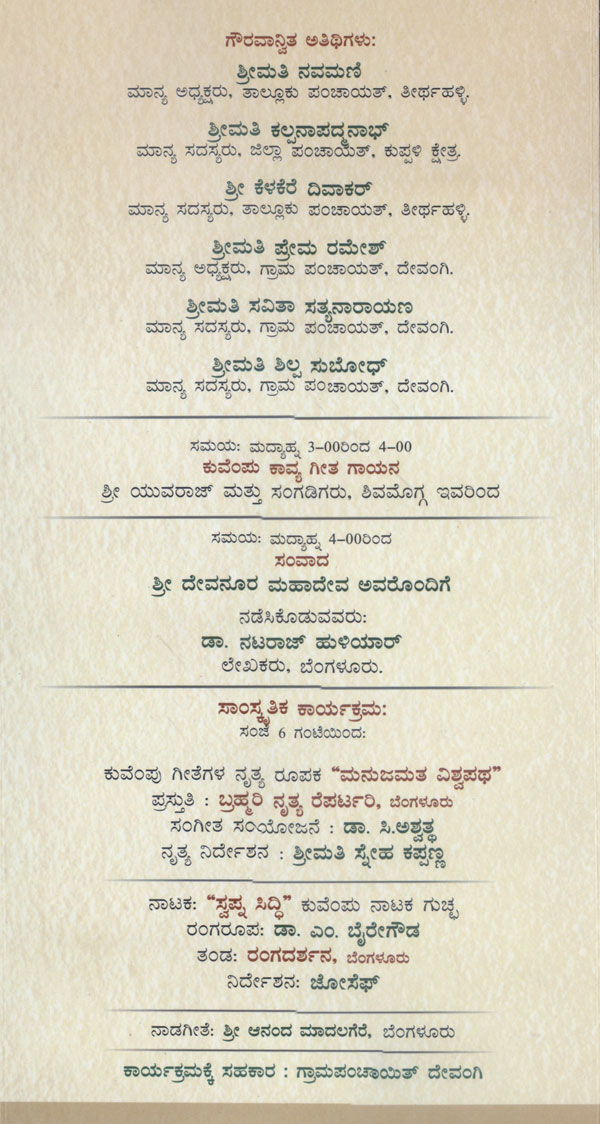 ಗೌರವಾನ್ವಿತ ಅತಿಥಿಗಳು:
ಶ್ರೀಮತಿ ನವಮಣಿ
ಮಾನ್ಯ ಅಧ್ಯಕ್ಷರು, ತಾಲ್ಲೂಕು ಪಂಚಾಯತ್, ತೀರ್ಥಹಳ್ಳಿ.
ಶ್ರೀಮತಿ ಕಲ್ಪನಾಪದ್ಮನಾಭ್
ಮಾನ್ಯ ಸದಸ್ಯರು, ಜಿಲ್ಲಾ ಪಂಚಾಯತ್, ಕುಪ್ಪಳಿ ಕ್ಷೇತ್ರ.
ಶ್ರೀ ಕೆಳಕೆರೆ ದಿವಾಕರ್
ಮಾನ್ಯ ಸದಸ್ಯರು, ತಾಲ್ಲೂಕು ಪಂಚಾಯತ್, ತೀರ್ಥಹಳ್ಳಿ.
ಶ್ರೀಮತಿ ಪ್ರೇಮ ರಮೇಶ್
ಮಾನ್ಯ ಅಧ್ಯಕ್ಷರು, ಗ್ರಾಮ ಪಂಚಾಯತ್, ದೇವಂಗಿ.
ಶ್ರೀಮತಿ ಸವಿತಾ ಸತ್ಯನಾರಾಯಣ
ಮಾನ್ಯ ಸದಸ್ಯರು, ಗ್ರಾಮ ಪಂಚಾಯತ್, ದೇವಂಗಿ.
ಶ್ರೀಮತಿ ಶಿಲ್ಪ ಸುಬೋಧ್
ಮಾನ್ಯ ಸದಸ್ಯರು, ಗ್ರಾಮ ಪಂಚಾಯತ್, ದೇವಂಗಿ.
ಸಮಯ: ಮಧ್ಯಾಹ್ನ 3-00ರಿಂದ 4-00
ಕುವೆಂಪು ಕಾವ್ಯ ಗೀತ ಗಾಯನ
ಶ್ರೀ ಯುವರಾಜ್ ಮತ್ತು ಸಂಗಡಿಗರು, ಶಿವಮೊಗ್ಗ ಇವರಿಂದ
ಸಮಯ: ಮಧ್ಯಾಹ್ನ 4-00ರಿಂದ
ಸಂವಾದ
ಶ್ರೀ ದೇವನೂರ ಮಹಾದೇವ ಅವರೊಂದಿಗೆ
ನಡೆಸಿಕೊಡುವವರು:
ಡಾ. ನಟರಾಜ್ ಹುಳಿಯಾರ್
ಲೇಖಕರು, ಬೆಂಗಳೂರು.
ಸಾಂಸ್ಕೃತಿಕ ಕಾರ್ಯಕ್ರಮ:
ಸಂಜೆ 6 ಗಂಟೆಯಿಂದ:
ಕುವೆಂಪು ಗೀತೆಗಳ ನೃತ್ಯ ರೂಪಕ “ಮನುಜಮತ ವಿಶ್ವಪಥ”
ಪ್ರಸ್ತುತಿ : ಬ್ರಹ್ಮರಿ ನೃತ್ಯ ರೆಪರ್ಟರಿ, ಬೆಂಗಳೂರು
ಸಂಗೀತ ಸಂಯೋಜನೆ : ಡಾ. ಸಿ.ಅಶ್ವತ್ಥ
ನೃತ್ಯ ನಿರ್ದೇಶನ : ಶ್ರೀಮತಿ ಸ್ನೇಹ ಕಪ್ಪಣ್ಣ
ನಾಟಕ: “ಸ್ವಪ್ನ ಸಿದ್ಧಿ” ಕುವೆಂಪು ನಾಟಕ ಗುಚ್ಛ
ರಂಗರೂಪ: ಡಾ. ಎಂ. ಬೈರೇಗೌಡ
ತಂಡ: ರಂಗದರ್ಶನ, ಬೆಂಗಳೂರು
ನಿರ್ದೇಶನ: ಜೋಸೆಫ್
ನಾಡಗೀತೆ: ಶ್ರೀ ಆನಂದ ಮಾದಲಗೆರೆ, ಬೆಂಗಳೂರು
ಕಾರ್ಯಕ್ರಮಕ್ಕೆ ಸಹಕಾರ : ಗ್ರಾಮಪಂಚಾಯಿತ್ ದೇವಂಗಿ